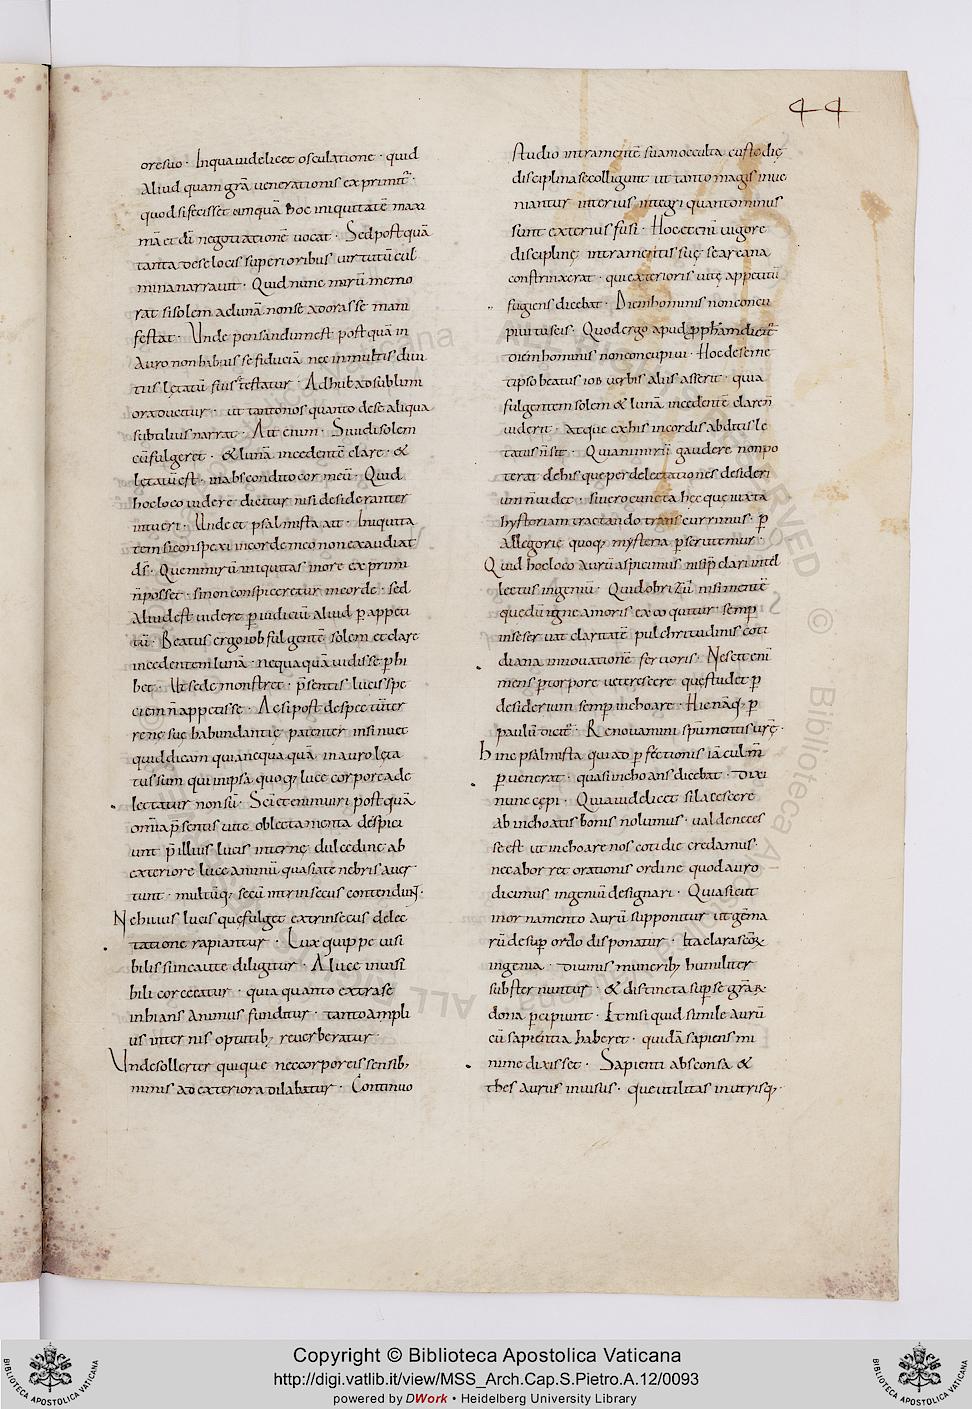 44
ore suo · In qua uidelicet osculatione · quid
aliud quam grã uenerationis exprimit᷑ ·
quod si fecisset umquã hoc iniquitatẽ maxi
mã et dĩ negotiationẽ uocat · Sed post quã
tanta de se locis superioribus uirtutũ cul
mina narrauit · Quid nunc mirũ memo
rat si solem ac lunã non se adorasse mani
festat · Unde pensandum est post quã in
auro non habuisse fiduciã nec in multis diui
tiis lętatũ fuisse testatur · Adhuc ad sublim
ora ducitur · ut tanto nos quanto de se aliqua
subtilius narrat · Ait enim · Si uidi solem
cũ fulgeret · & lunã incedentẽ clare · &
lętatũ est · in abscondito cor meũ · Quid
hoc loco uidere dicitur nisi desideranter
intueri · Unde et psalmista ait · Iniquita
tem si conspexi in corde meo non exaudiat
ds · Que nimirũ iniquitas in ore exprimi
ñ posset · si non conspiceretur in corde · sed
aliud est uidere p̱ iudiciũ aliud p̱ appeti
tũ · Beatus ergo iob fulgentẽ solem et clare
incedentem lunã · nequaquã uidisse p̱hi
bet · Ut se demonstret · p̃sentis lucis spe
ciem ñ appetisse · Ac si post despectũ ter
rene suę habundantię patenter insinuet
quid dicam quia nequaquã in auro lęta
tus sum qui in ipsa quoq; luce corporea de
lectatur non sũ · Sci etenim uiri post quã
om̃ia p̃sentis uite oblectamenta despici
unt p̃ illius lucis internę dulcedine ab
exteriore luce animũ quasi a tenebris auer
tunt · multũq; secũ intrinsecus contendunt ·
Ne huius lucis que fulget extrinsecus delec
tatione rapiantur · Lux quippe uisi
bilis si incaute diligitur · A luce inuisi
bili cor cecatur · quia quanto extra se
inhians animus funditur · tanto ampli
us internis optutib; reuerberatur ·
Unde sollerter quique nec corporeis sensib;
nimis ad exteriora dilabatur · Continuo
studio intra mentẽ suam occulta custodię
disciplina se colligunt ut tanto magis inue
niantur interius integri quanto minus
sunt exterius fusi · Hoc etenĩ uigore
disciplinę intra mentis suę se arcana
constrinxerat · qui exterioris uitę appetitũ
fugiens dicebat · Diem hominis non concu
piui tu scis · Quod ergo apud p̱ph̃am dicit᷑
diem hominis non concupiui · Hoc de seme
tipso beatus iob uerbis aliis asserit · quia
fulgentem solem & lunã incedentẽ clarẽ ñ
uiderit · atque ex his in cordis abditis le
tatus ñ sit · Quia nimirũ gaudere non po
terat de his que per delectationes desideri
um ñ uidet · si uero cuncta hęc que iuxta
hystoriam tractando transcurrimus · p̱
allegorie quoq; mysteria p̱scrutemur ·
Quid hoc loco aurũ aspicimus nisi p̃clari intel
lectus ingeniũ · Quid obrizũ nisi mentẽ
que dũ igne amoris excoquitur · semp̱
in se seruat claritatẽ pulchritudinis coti
diana innouationẽ feruoris · Nescit enĩ
mens p̱ torpore ueterescere que studet p̱
desiderium semp̱ inchoare · Hinc nãq; p̱
paulũ dicit᷑ · Renouamini spũ mentis urę ·
hinc psalmista qui ad p̱fectionis iã culm̃
p̱uenerat · quasi inchoans dicebat · dixi
nunc cępi · Quia uidelicet si lacescere
ab inchoatis bonis nolumus · ualde neces
se est ut inchoare nos cotidie credamus ·
nec abhorret orationis ordine quod auro
dicimus ingeniũ designari · Quia sicut
in ornamento aurũ supponitur ut gẽma
rũ desup̱ ordo disponatur · Ita clara scõꝝ
ingenia · diuinis munerib; humiliter
substernuntur · & distincta sup̱ se gr̃aꝝ
dona p̱cipiunt · Et nisi quid simile aurũ
cũ sapientia haberet · quidã sapiens mi
nime dixisset · Sapienti absconsa &
thesaurus inuisus · que utilitas in utrisq; ·
Copyright © Biblioteca Apostolica Vaticana
http://digi.vatlib.it/view/MSS_Arch.Cap.S.Pietro.A.12/0093
powered by DWork • Heidelberg University Library